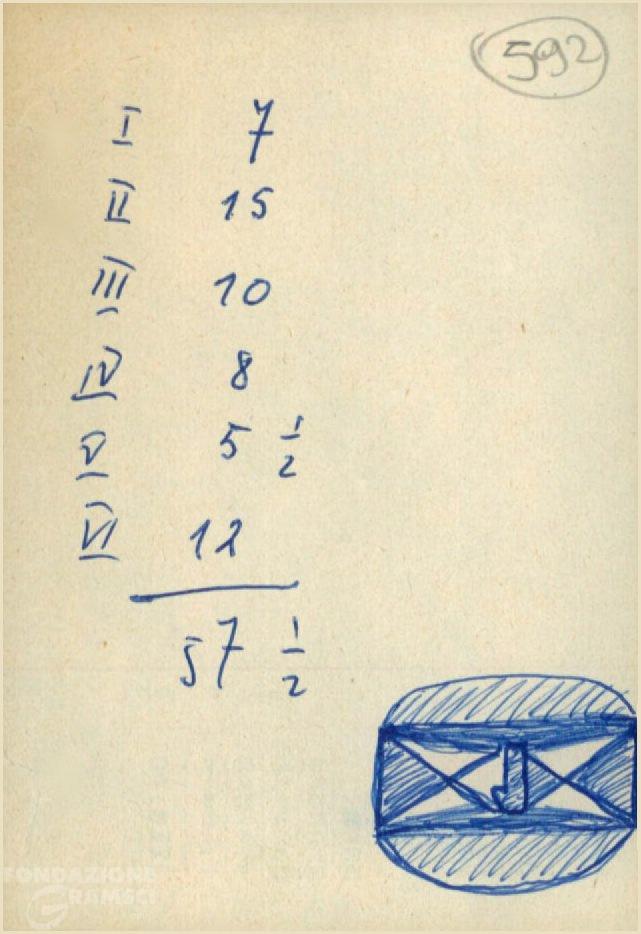 592
I 7
II 15
III 10
IV 8
V 5 1/2
VI 12
57 1/2
FONDAZIONE
GRAMSCI